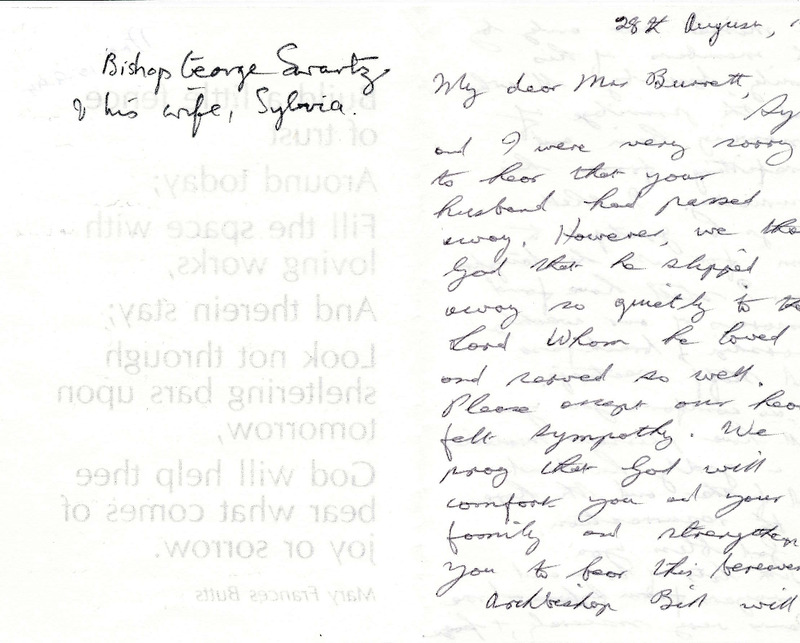 Bishop George Swartz
& his wife, Sylvia.
Build a little fence
of trust
Around today;
Fill the space with
loving works,
And therein stay;
Look not through
sheltering bars upon
tomorrow,
God will help thee
bear what comes of
joy or sorrow.
Mary Frances Butts
28th August,
My dear Mrs Burnett,
Sy
and I were very sorry
to hear that your
husband had passed
away. However, we tha
God that he slipped
away so quietly to th
Lord Whom he loved
and served so well.
Please accept our hea
felt sympathy. We
pray that God will
comfort you and your
family and strengthen
you to bear this bereave
Archbishop Bill will